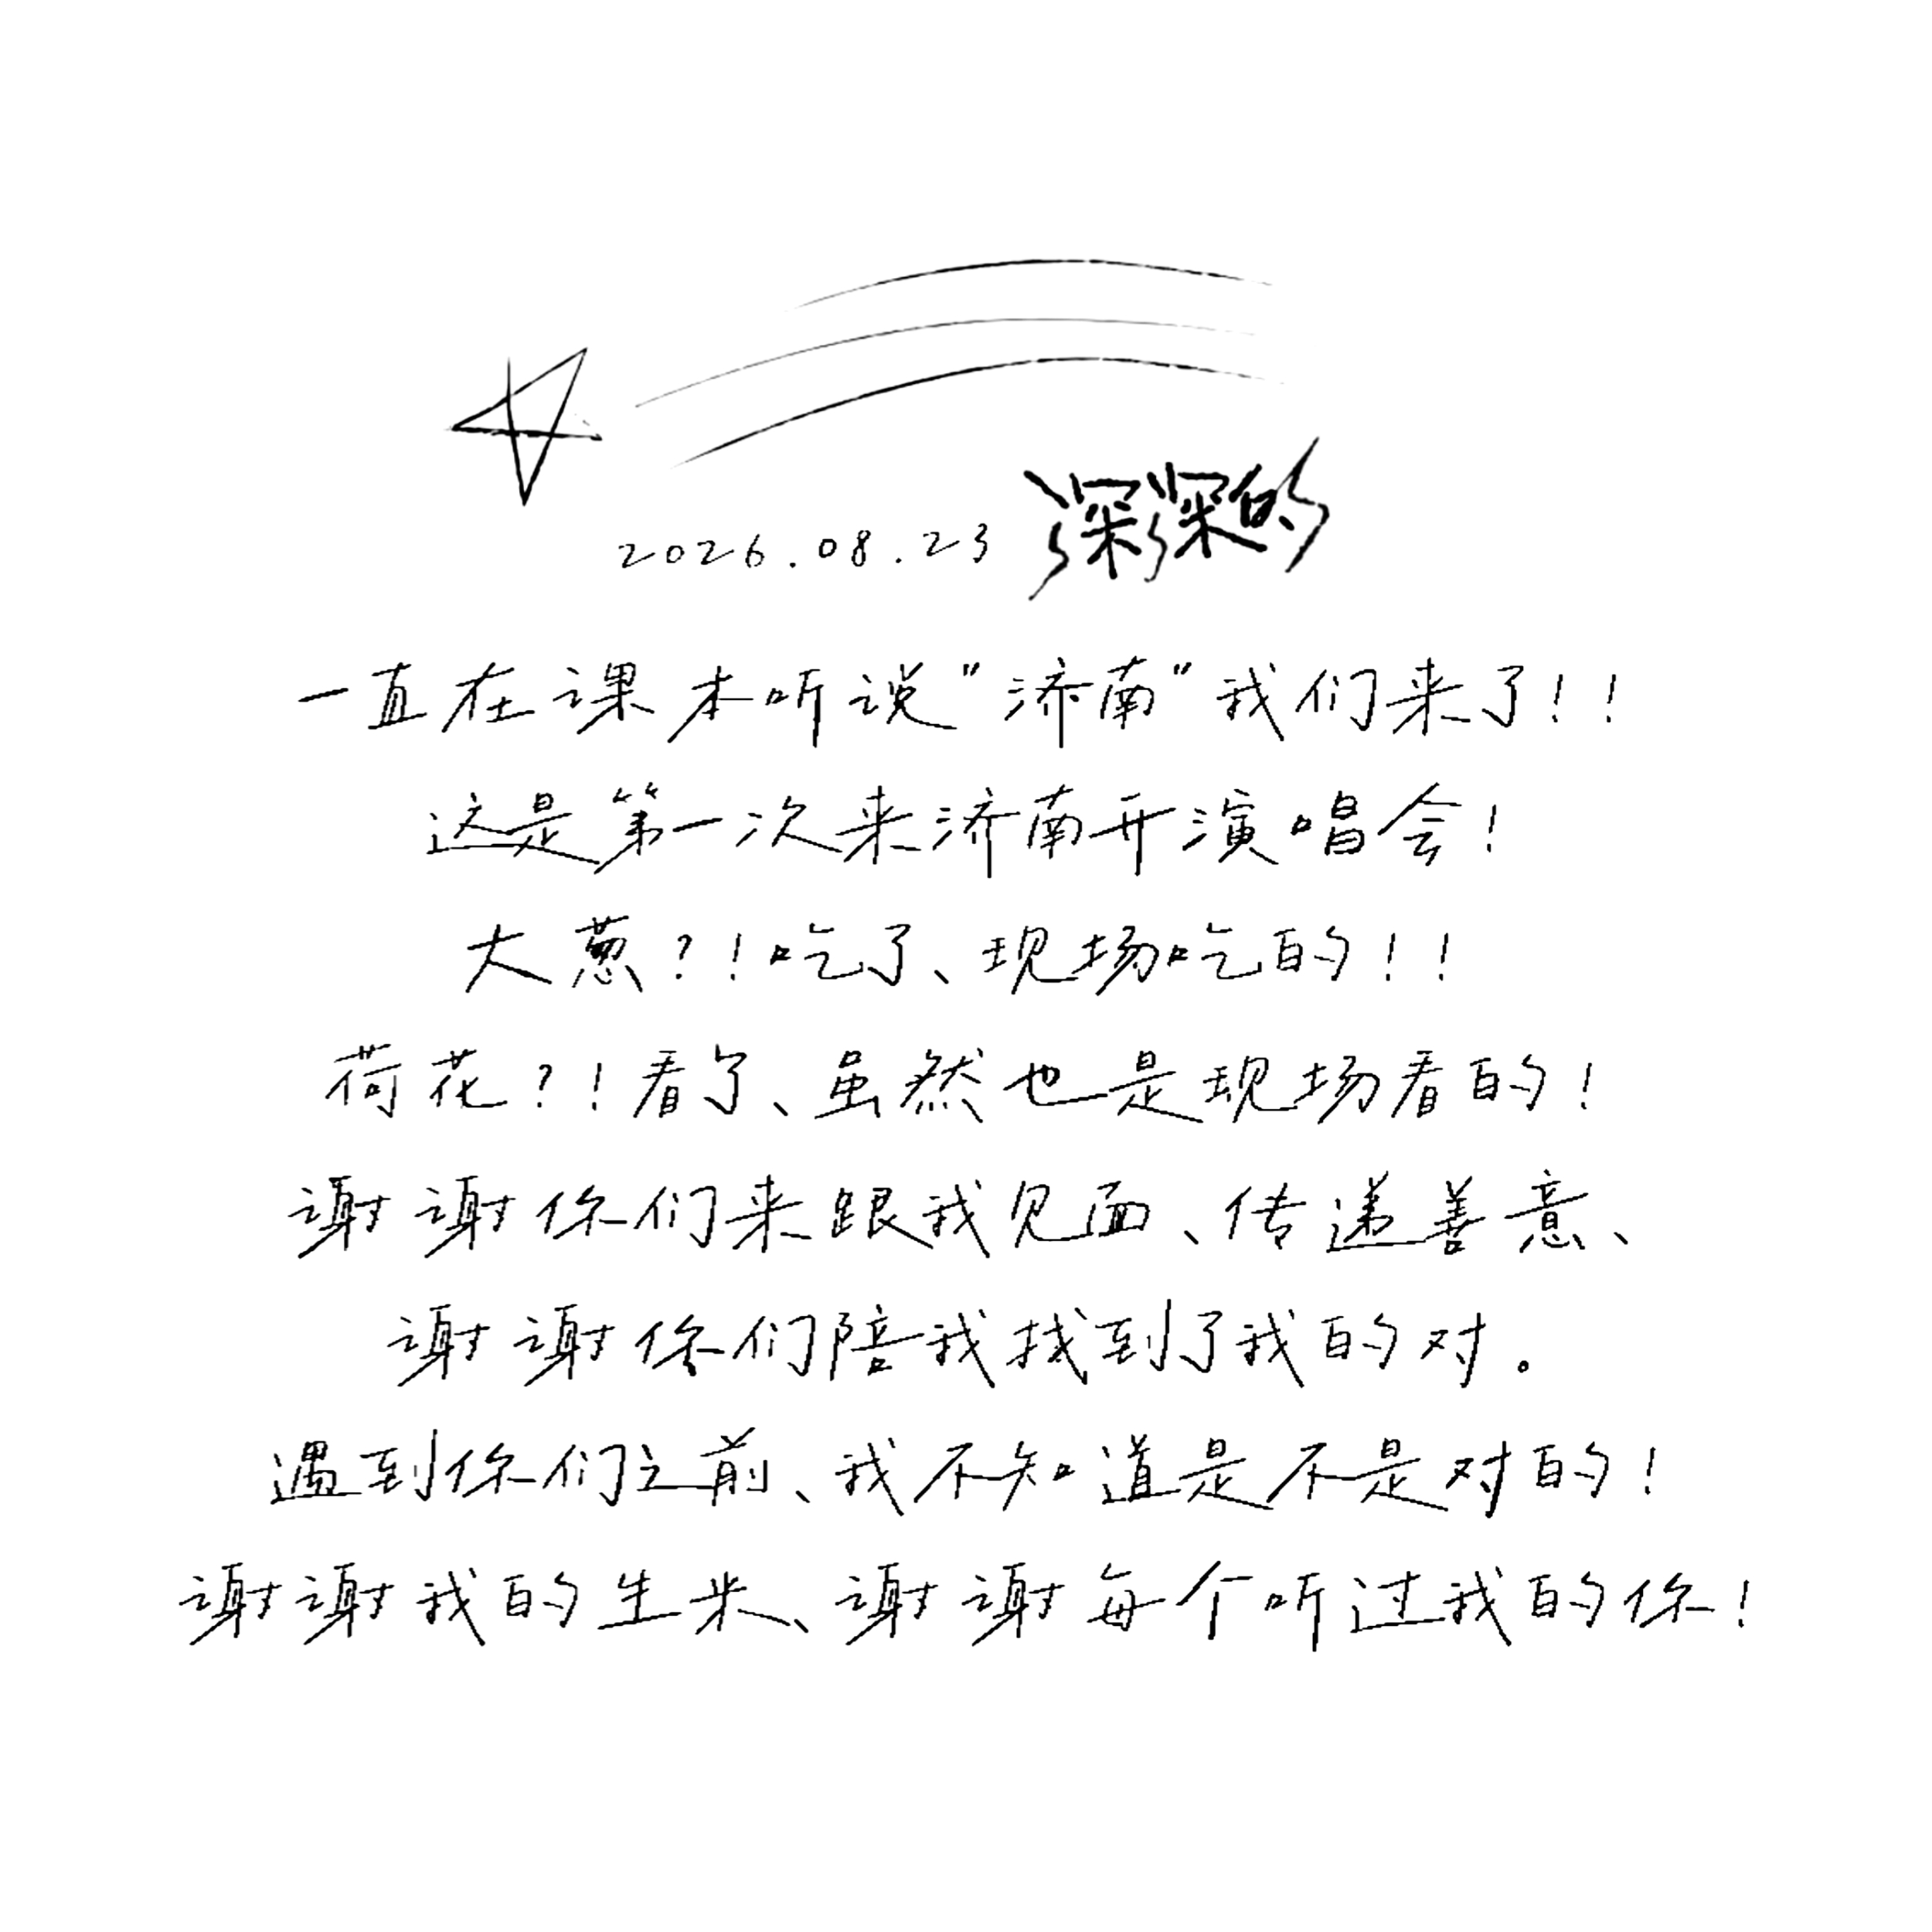 2026.08.23 深深的
一直在课本听说"济南"我们来了!!
这是第一次来济南开演唱会!
大葱?!吃了、现场吃的!!
荷花?!看了、虽然也是现场看的!
谢谢你们来跟我见面、传递善意、
谢谢你们陪我找到了我的对。
遇到你们之前、我不知道是不是对的!
谢谢我的生米、谢谢每个听过我的你!